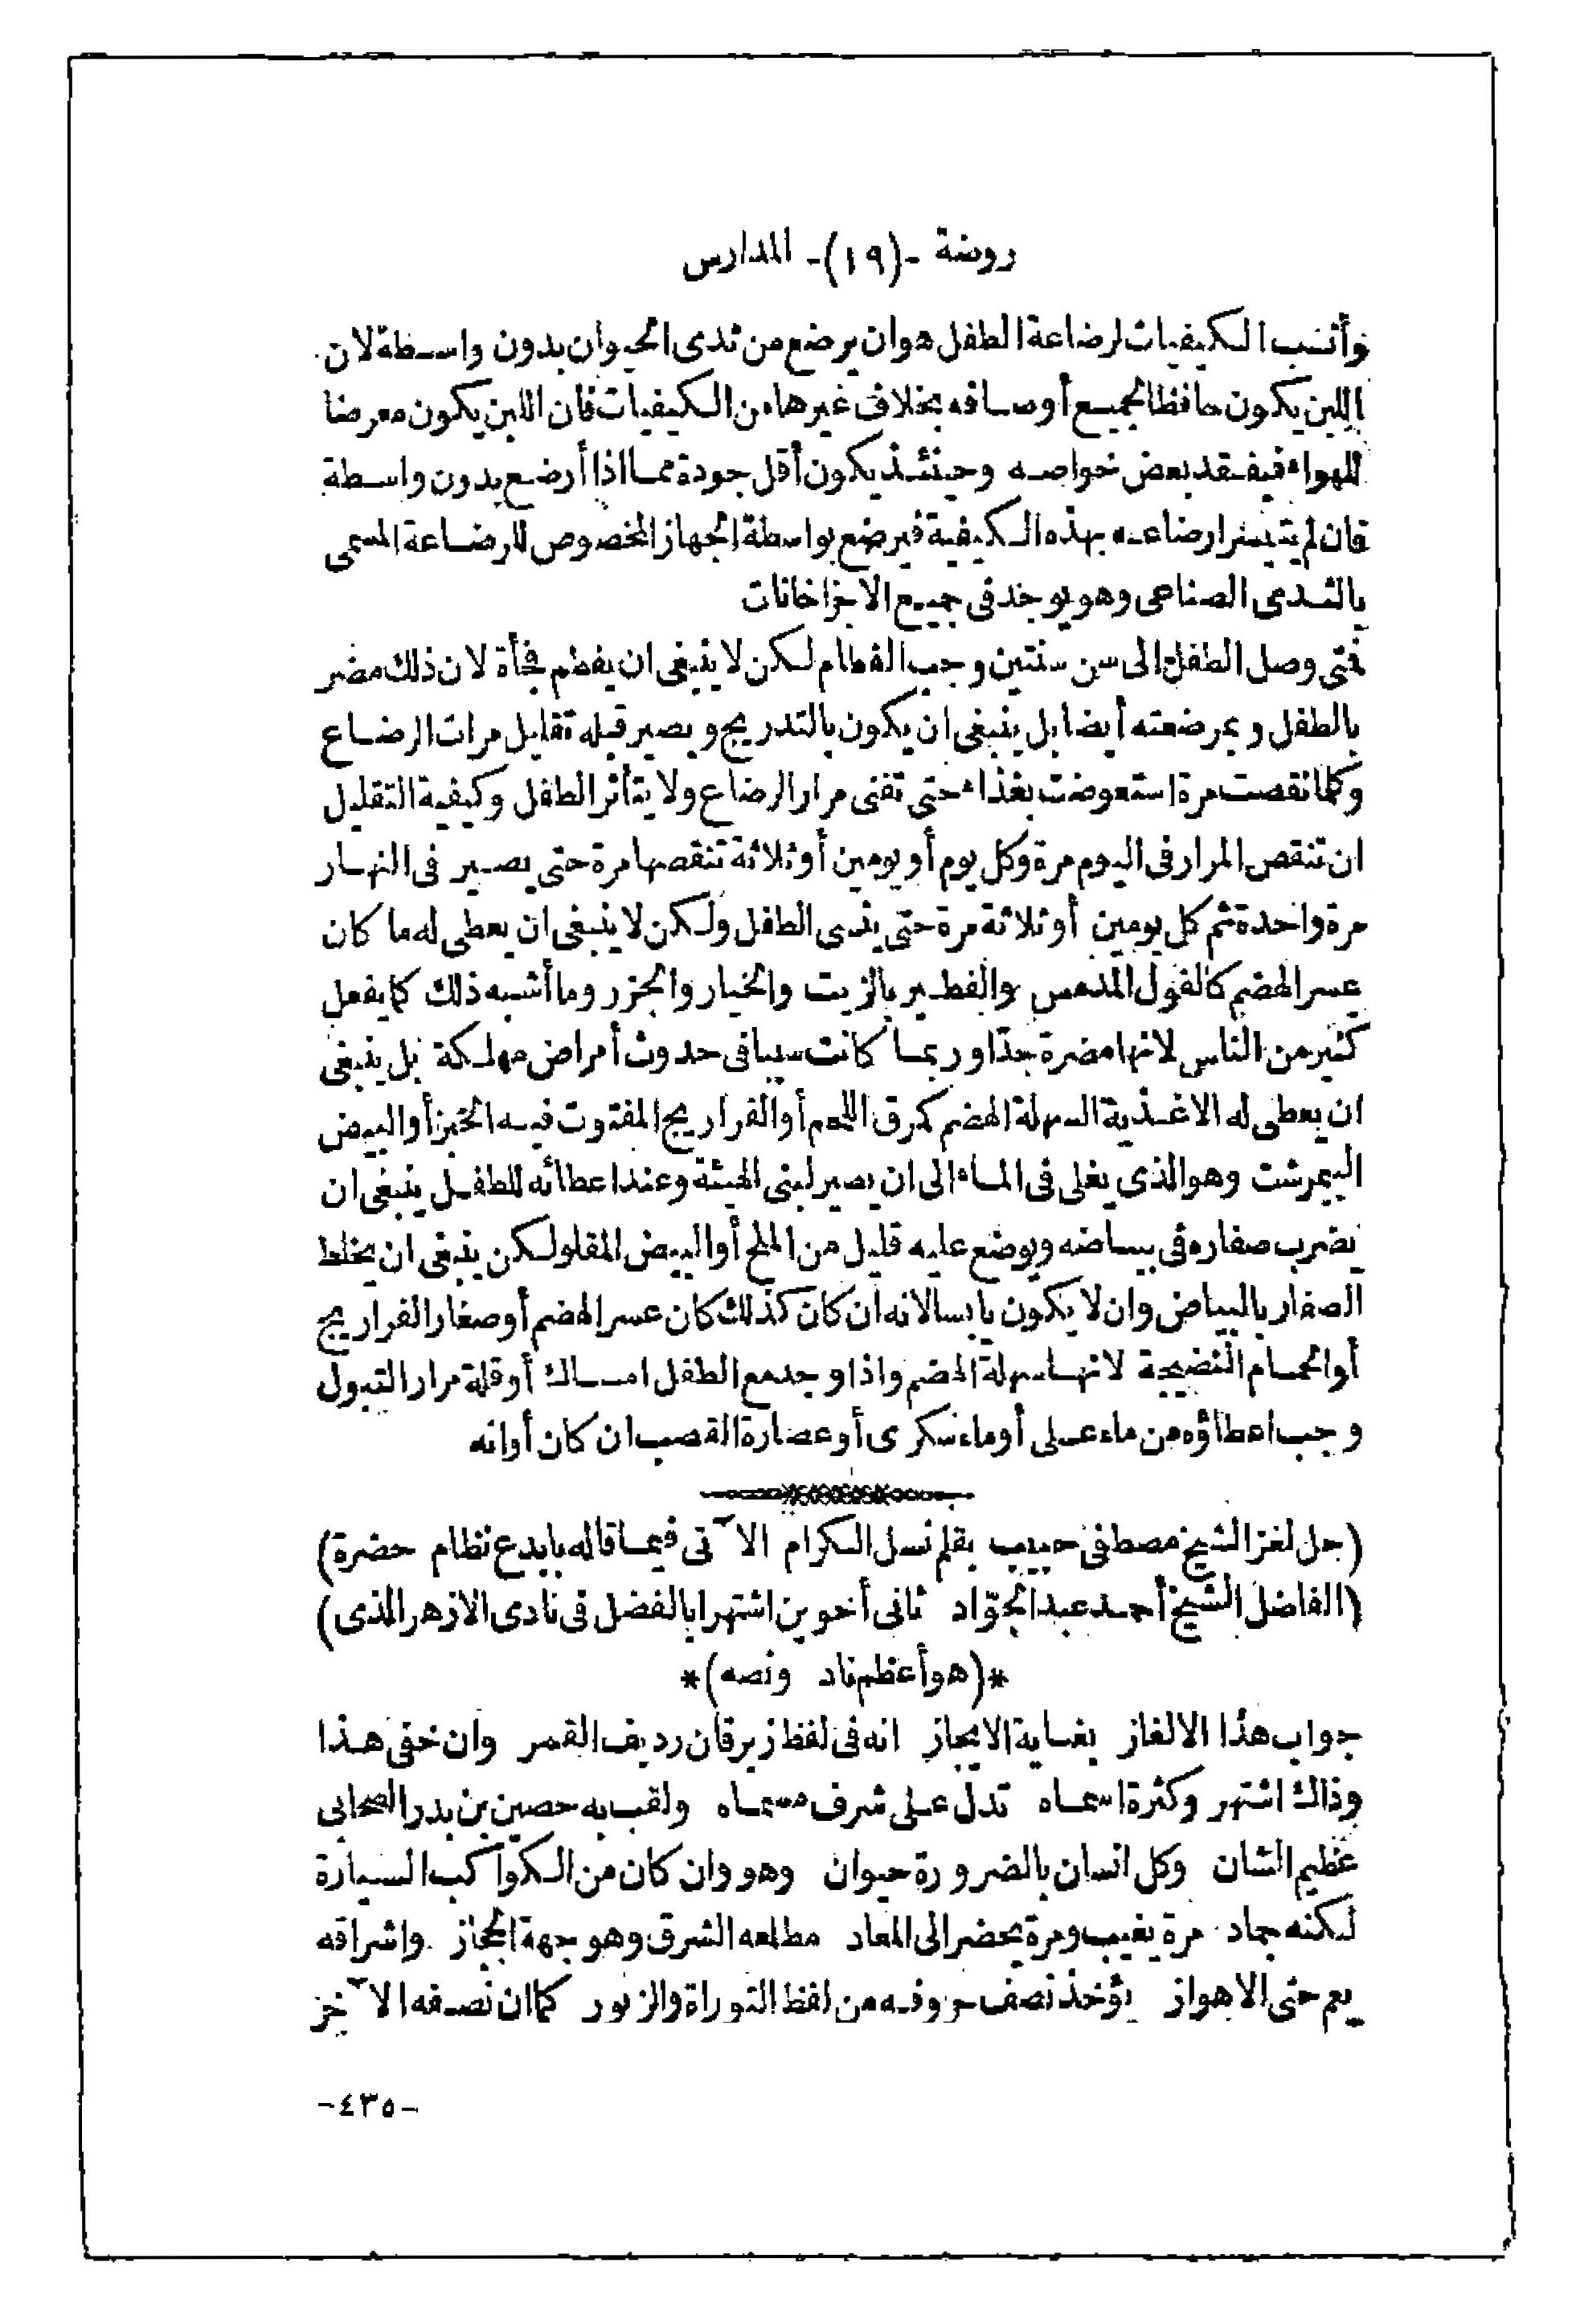 روضة -(١٩)- المدارس
وأنسب الكيفيات لرضاعة الطفل هو ان يرضع من ثدى الحيوان بدون واسطة لان
اللبن يكون حافظا لجميع أوصافه بخلاف غيرها من الكيفيات فان اللبن يكون معرضا
للهواء فيفقد بعض خواصه وحينئذ يكون أقل جودة مما اذا أرضع بدون واسطة
فان لم يتيسر ارضاعه بهذه الكيفية فيرضع بواسطة الجهاز المخصوص للرضاعة المسمى
بالثدى الصناعى وهو يوجد فى جميع الاجزاخانات
فتى وصل الطفل الى سن سنتين وجب الفطام لكن لا ينبغى ان يفطم فجأة لان ذلك مضر
بالطفل وبمرضعته أيضا بل ينبغى ان يكون بالتدريج ويصير قبله تقليل مرات الرضاع
وكلما نقصت مرة استعوضت بغذاء حتى تفنى مرار الرضاع ولا يتأثر الطفل وكيفية التقليل
ان تنقص المرار فى اليوم مرة وكل يوم أو يومين أو ثلاثة تنقصها مرة حتى يصير فى النهار
مرة واحدة ثم كل يومين أو ثلاثة مرة حتى ينسى الطفل ولكن لا ينبغى ان يعطى له ما كان
عسر الهضم كالفول المدمس والفطير بالزيت والخيار والجزر وما أشبه ذلك كما يفعل
كثير من الناس لانها مضرة جدا وربما كانت سببا فى حدوث أمراض مهلكة بل ينبغى
ان يعطى له الاغذية السهلة الهضم كمرق اللحم أو الفراريج المفتوت فيه الخبز أو البيض
اليمرشت وهو الذى يغلى فى الماء الى ان يصير لبنى الهيئة وعند اعطائه للطفل ينبغى ان
يضرب صفاره فى بياضه ويوضع عليه قليل من الملح أو البيض المقلو لكن ينبغى ان يخلط
الصفار بالبياض وان لا يكون يابسا لانه ان كان كذلك كان عسر الهضم أو صغار الفراريج
أو الحمام النضيجة لانها سهلة الهضم واذا وجد مع الطفل امساك أو قلة مرار التبول
وجب اعطاؤه من ماء عسلى أو ماء سكرى أو عصارة القصب ان كان أوانه
(حل لغز الشيخ مصطفى حبيب بقلم نسل الكرام الآتى فيما قاله بابدع نظام حضرة)
(الفاضل الشيخ أحمد عبد الجوّاد ثانى أخوين اشتهرا بالفضل فى نادى الازهر الذى)
*(هو أعظم ناد ونصه)*
جواب هذا الالغاز بغاية الايجاز انه فى لفظ زبرقان رديف القمر وان خفى هذا
وذاك اشتهر وكثرة اسماه تدل على شرف مسماه ولقب به حصين بن بدر الصحابى
عظيم الشان وكل انسان بالضرورة حيوان وهو وان كان من الكواكب السيارة
لكنه جماد مرة يغيب ومرة يحضر الى المعاد مطلعه الشرق وهو جهة الحجاز واشراقه
يعم حتى الاهواز يؤخذ نصف حروفه من لفظ التوراة والزبور كما ان نصفه الآخر
-٤٣٥-